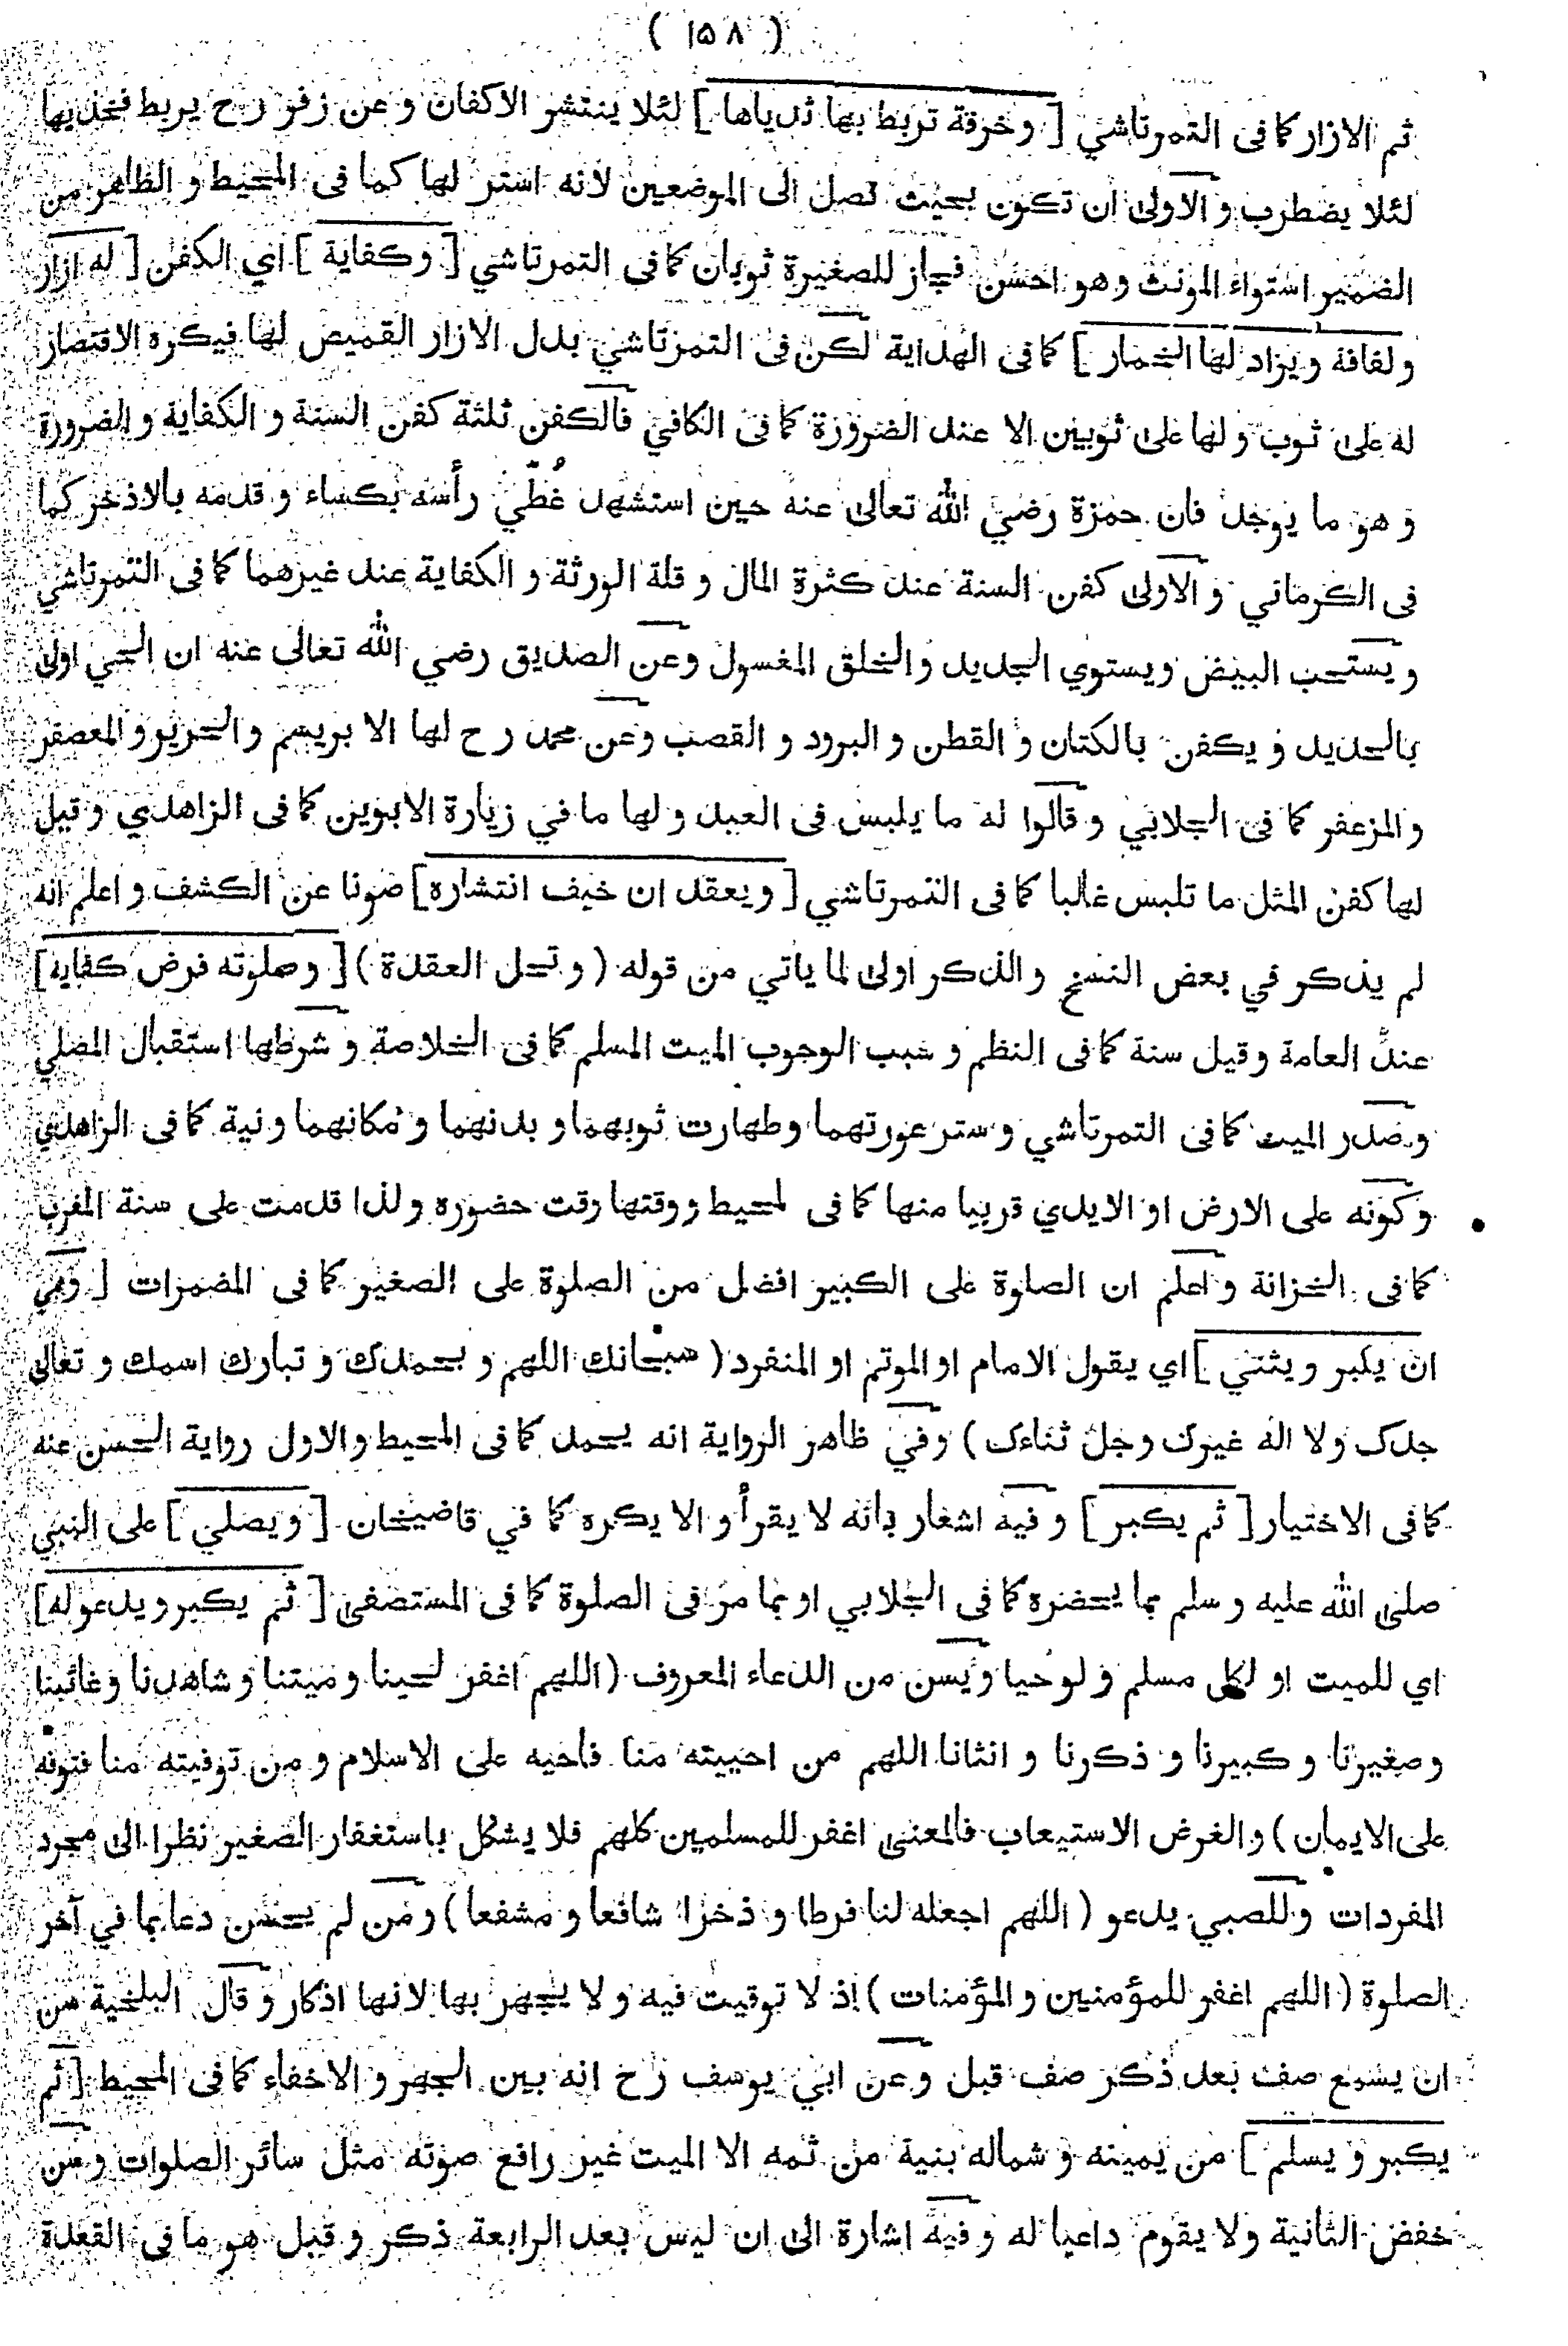 ( ١٥٨ )
ثم الازار كما فى التمرتاشي [ وخرقة تربط بها ثدياها ] لئلا ينتشر الاكفان و عن زفر رح يربط فخذيها
لئلا يضطرب و الاولى ان تكون بحيث تصل الى الموضعين لانه استر لها كما فى المحيط و الظاهر من
الضمير استواء المونث وهو احسن فجاز للصغيرة ثوبان كما فى التمرتاشي [ وكفاية ] اي الكفن [ له ازار
ولفافة ويزاد لها الخمار ] كما فى الهداية لكن فى التمرتاشي بدل الازار القميص لها فيكره الاقتصار
له على ثوب و لها على ثوبين الا عند الضرورة كما فى الكافي فالكفن ثلثة كفن السنة و الكفاية و الضرورة
و هو ما يوجد فان حمزة رضي الله تعالى عنه حين استشهد غُطّي رأسه بكساء و قدمه بالاذخر كما
فى الكرماني و الاولى كفن السنة عند كثرة المال و قلة الورثة و الكفاية عند غيرهما كما فى التمرتاشي
و يستحب البيض ويستوي الجديد والخلق المغسول وعن الصديق رضي الله تعالى عنه ان الحي اولى
بالجديد و يكفن بالكتان و القطن و البرود و القصب وعن محمد رح لها الا بريسم و الحرير و المعصفر
والمزعفر كما فى الجلابي و قالوا له ما يلبس فى العيد و لها ما في زيارة الابوين كما فى الزاهدي و قيل
لها كفن المثل ما تلبس غالبا كما فى التمرتاشي [ و يعقد ان خيف انتشاره ] صونا عن الكشف و اعلم انه
لم يذكر في بعض النسخ والذكر اولى لما ياتي من قوله ( و تحل العقدة ) [ وصلوته فرض كفاية ]
عند العامة و قيل سنة كما فى النظم و سبب الوجوب الميت المسلم كما فى الخلاصة و شرطها استقبال المصلي
و صدر الميت كما فى التمرتاشي و ستر عورتهما و طهارت ثوبهما و بدنهما و مكانهما و نية كما فى الزاهدي
وكونه على الارض او الايدي قريبا منها كما فى لمحيط و وقتها وقت حضوره و لذا قدمت على سنة المغرب
كما فى الخزانة و اعلم ان الصلوة على الكبير افضل من الصلوة على الصغير كما فى المضمرات [ وهي
ان يكبر و يثني ] اي يقول الامام او الموتم او المنفرد ( سبحانك اللهم و بحمدك و تبارك اسمك و تعالى
جدك ولا اله غيرك وجل ثناءك ) وفي ظاهر الرواية انه يحمد كما فى المحيط والاول رواية الحسن عنه
كما فى الاختيار [ ثم يكبر ] و فيه اشعار بانه لا يقرأ و الا يكره كما في قاضيخان [ و يصلي ] على النبي
صلى الله عليه و سلم بما يحضره كما فى الجلابي او بما مر فى الصلوة كما فى المستصفى [ ثم يكبر و يدعوله ]
اي للميت او لكل مسلم و لو حيا و يسن من الدعاء المعروف ( اللهم اغفر لحينا و ميتنا و شاهدنا و غائبنا
و صغيرنا و كبيرنا و ذكرنا و انثانا اللهم من احييته منا فاحيه على الاسلام و من توفيته منا فتوفه
على الايمان ) و الغرض الاستيعاب فالمعنى اغفر للمسلمين كلهم فلا يشكل باستغفار الصغير نظرا الى مجرد
المفردات وللصبي يدعو ( اللهم اجعله لنا فرطا و ذخرا شافعا و مشفعا ) و من لم يحسن دعا بما في آخر
الصلوة ( اللهم اغفر للمؤمنين و المؤمنات ) إذ لا توقيت فيه و لا يجهر بها لانها اذكار و قال البلخية سن
ان يسمع صف بعد ذكر صف قبل و عن ابي يوسف رح انه بين الجهر و الاخفاء كما فى المحيط [ ثم
يكبر و يسلم ] من يمينه و شماله بنية من ثمه الا الميت غير رافع صوته مثل سائر الصلوات و سن
خفض الثانية ولا يقوم داعيا له و فيه اشارة الى ان ليس بعد الرابعة ذكر و قيل هو ما فى القعدة